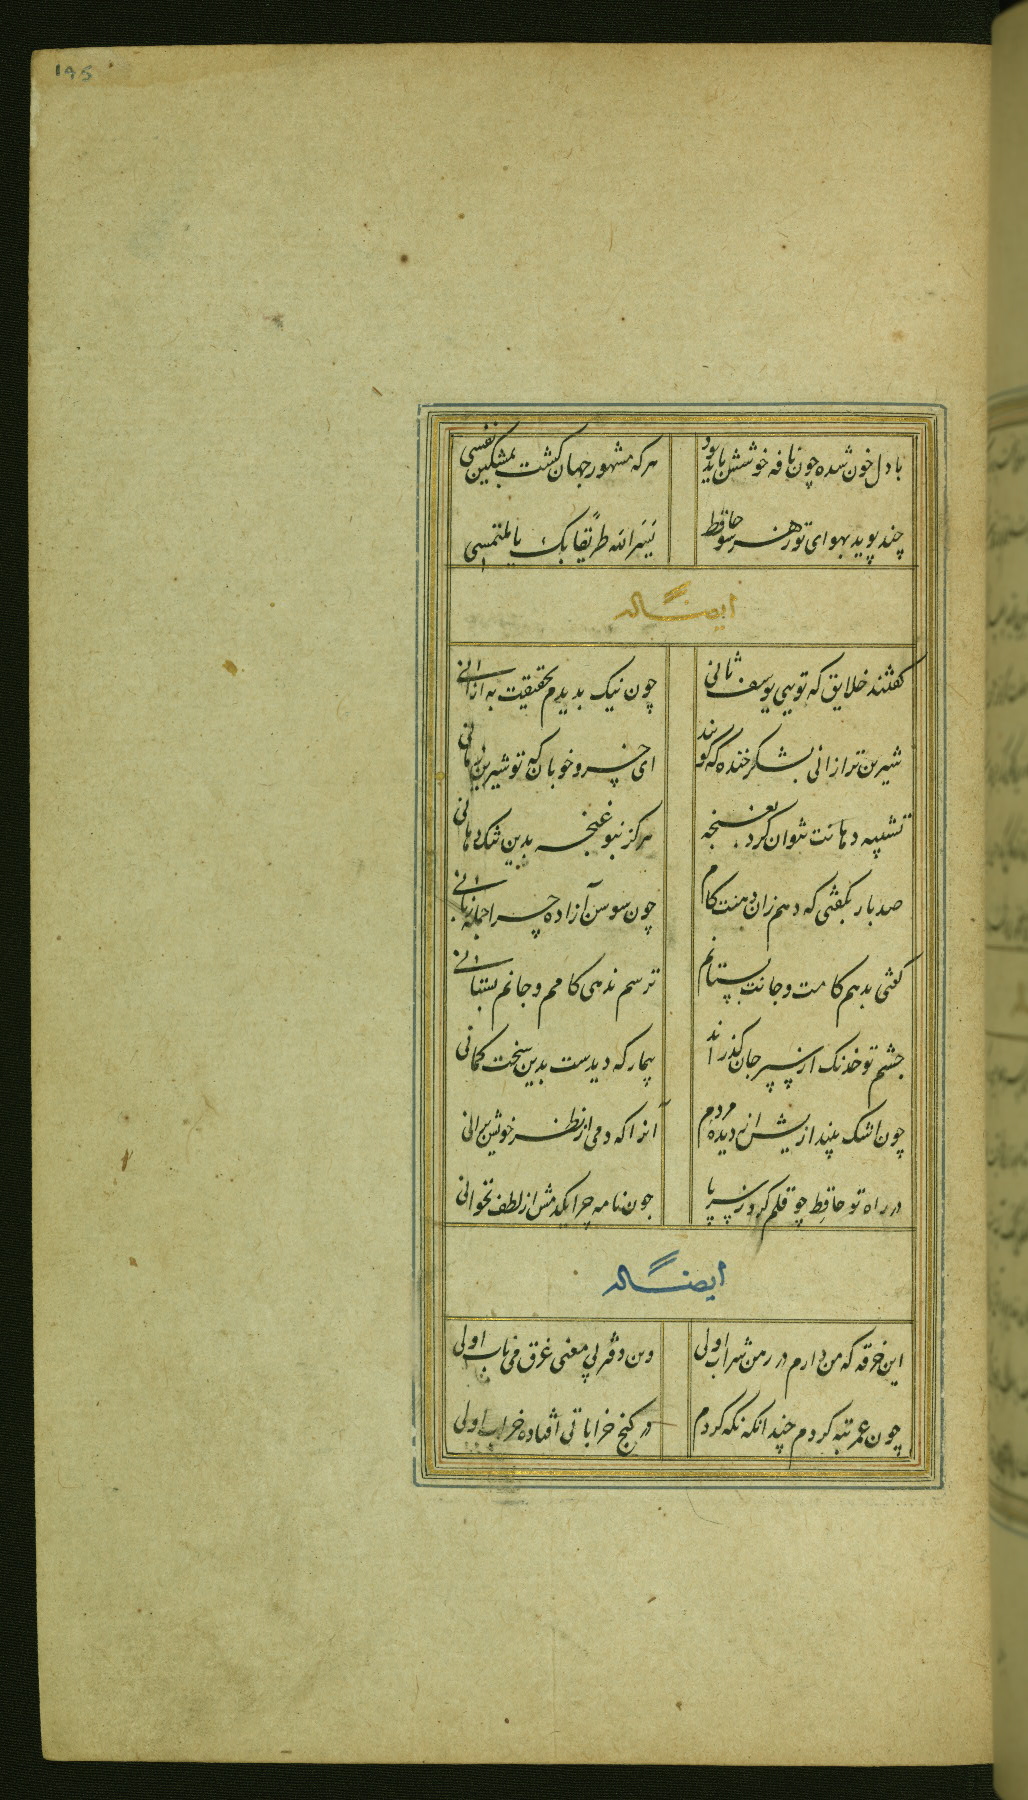 ۱۹۵
با دل خون شده چون نافه خوشش باید بود هر که مشهور جهان گشت بمشکین نفسی
چند پوید بهوای تو ز هر سو حافظ یسر الله طریقا بک یا ملتمسی
ایضاً له
گفتند خلایق که تویی یوسف ثانی چون نیک بدیدم بحقیقت به ازانی
شیرین تر ازانی بشکر خنده که گویند ای خسرو خوبان که تو شیرین زمانی
تشبیه دهانت نتوان کرد بغنچه هرگز نبود غنچه بدین تنگ دهانی
صد بار بگفتی که دهم زان دهنت کام چون سوسن آزاده چرا جمله زبانی
گفتی بدهم کامت و جانت بستانم ترسم ندهی کامم و جانم بستانی
چشم تو خدنگ از سپر جان گذراند بیمار که دیدست بدین سخت کمانی
چون اشک بیندازیش از دیده مردم آنرا که دمی از نظر خویش برانی
در راه تو حافظ چو قلم کرد ز سر پا چون نامه چرا یکدمش از لطف نخوانی
ایضاً له
این خرقه که من دارم در رهن شراب اولی وین دفتر بی معنی غرق می ناب اولی
چون عمر تبه کردم چندانکه نگه کردم در کنج خراباتی افتاده خراب اولی